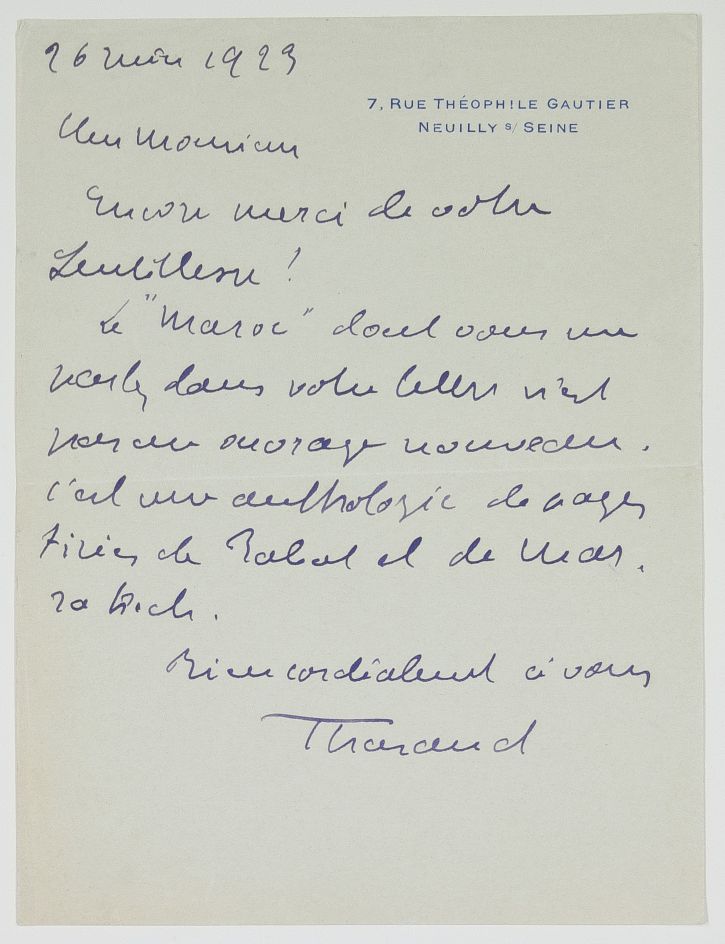 26 juin 1923
7, RUE THÉOPHILE GAUTIER
NEUILLY s/ SEINE
Cher Monsieur
Encore merci de votre
gentillesse !
Le "Maroc" dont vous me
parlez dans votre lettre n'est
pas un ouvrage nouveau.
C'est une anthologie de pages
tirées de Rabat et de Mar-
rakech.
Bien cordialement à vous
Tharaud